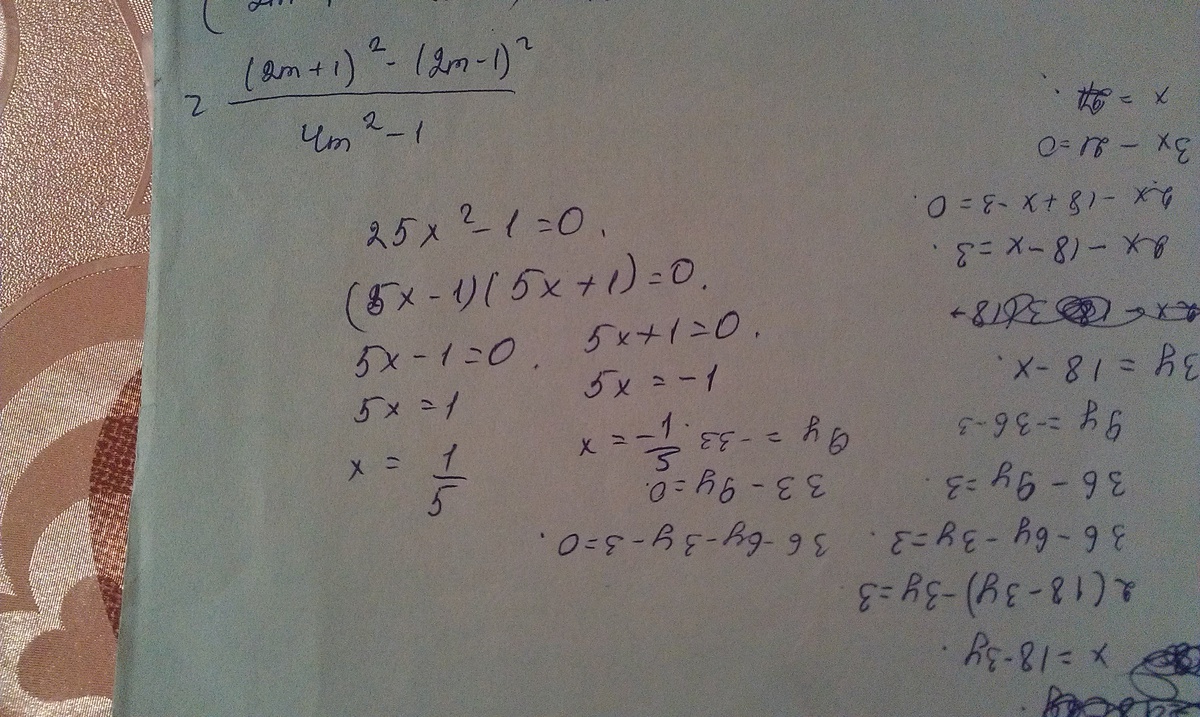 (2m+1)² - (2m-1)²
4m² - 1
25x² - 1 = 0.
(5x - 1)(5x + 1) = 0.
5x - 1 = 0. 5x + 1 = 0.
5x = 1 5x = -1
x = 1/5 x = -1/5
x = 18-3y.
2(18-3y)-3y=3
36-6y-3y=3. 36-6y-3y-3=0.
36-9y=3. 33-9y=0.
9y=-36-3 9y=-33.
3y=18-x.
2x-18-x=3.
2x-18+x-3=0.
3x-21=0
x =